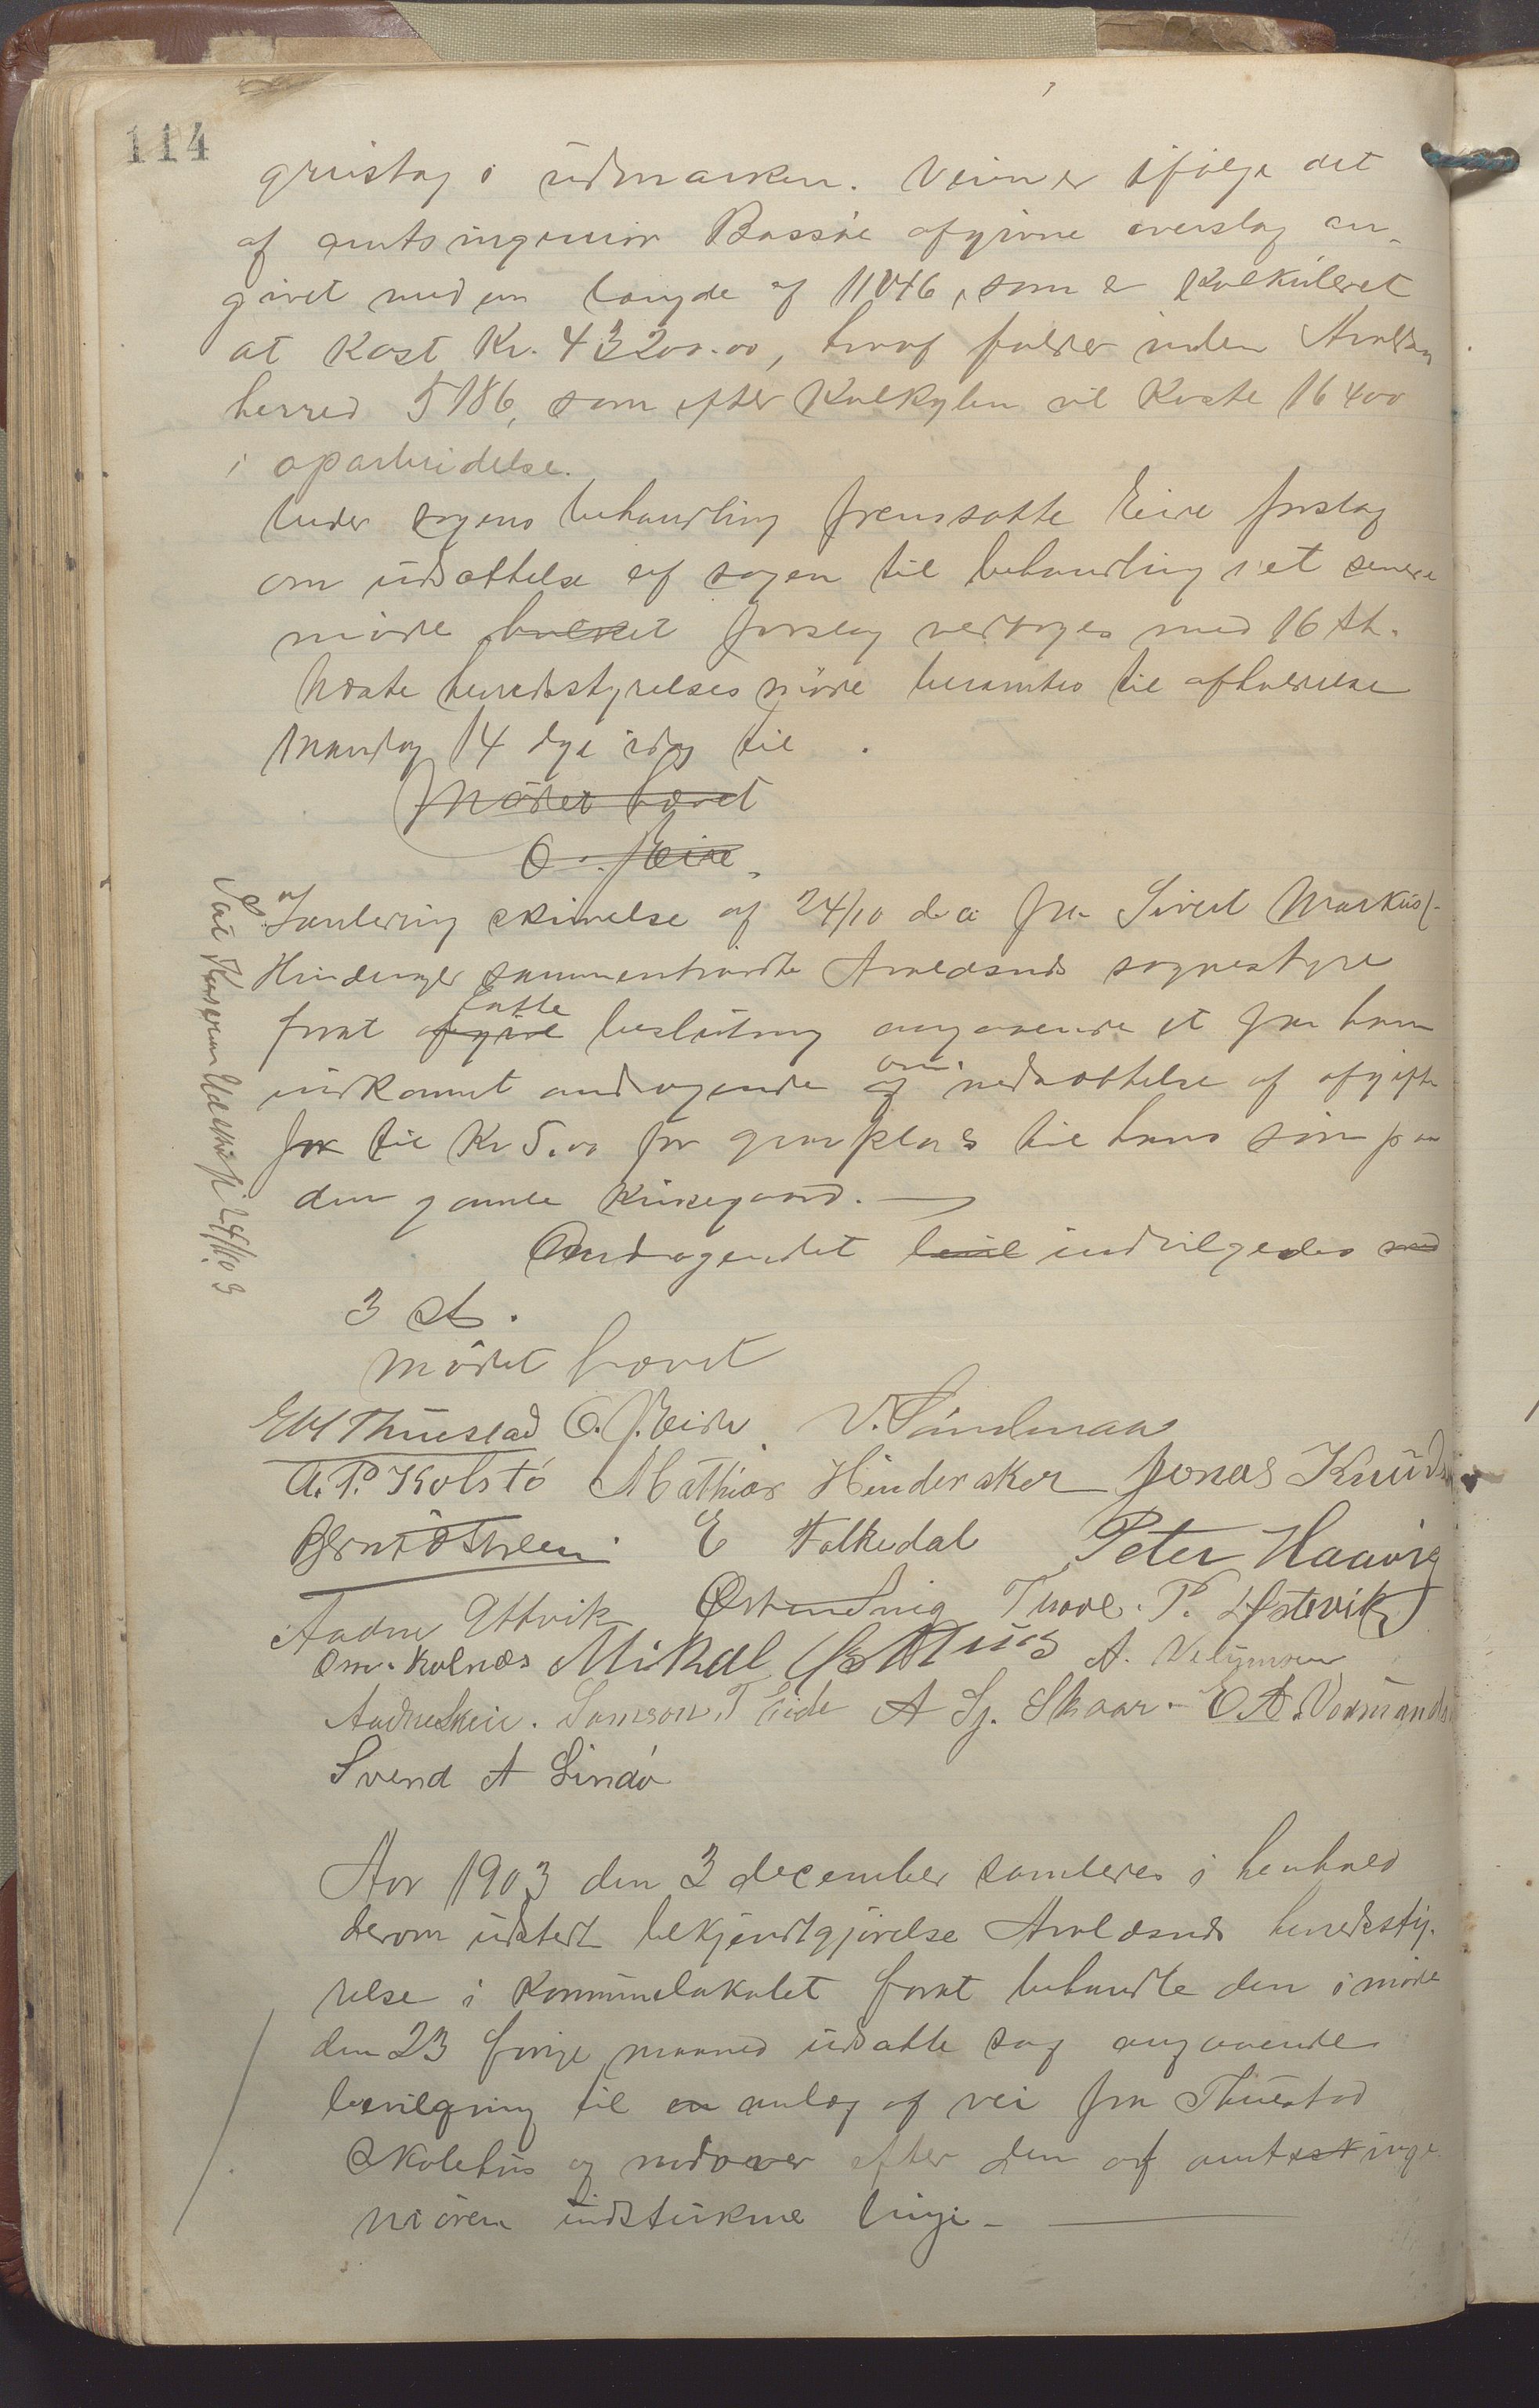 114
grustag i udmarken. Veien er ifølge det
af amtsingeniør Bassøe afgivne overslag an-
givet med en længde af 11046, som er kalkuleret
at kost Kr. 43200.00, hvoraf falder inden Avaldsn
herred 5186, som efter Kalkylen vil koste 16400
i oparbeidelse.
Under sagens behandling fremsatte Eide forslag
om udsættelse af sagen til behandling i et senere
møde hvilket forslag vedtoges med 16 st.
Næste herredsstyrelses møde berammes til afholdelse
mandag 14 dage idag til .
Mødet hævet
O. J. Eide.
I anledning af skrivelse af 24/10 d.a. fra Sivert Markus
Hinderager sammentraadte Avaldsnes sognestyre
forat afgive fatte beslutning angaaende et fra ham
indkommet andragende af om nedsættelse af afgift
for til Kr 5.00 for gravplads til hans søn paa
den gamle kirkegaard.
Andragendet indvilgedes med
3 st.
Mødet hævet
Thuestad O. J. Eide. V. Sundmann
A. P. Kolstø Mathias Hinderaker Jonas Knuds
E Falkedal Peter Haavig
Aadne Uttvik Thore P. Østevik
Om. Kolnes Mikal A.
Aadne Skeie. Samson T Eide A Sj. Skaar. O. A. Vormands
Svend A Lindø
Aar 1903 den 3 december samledes i henhold
derom udstedt bekjendtgjørelse Avaldsnes herredssty-
relse i Kommunelokalet forat behandle den i møde
den 23 forrige maaned udsatte sag angaaende
bevilgning til en anlæg af vei fra Thuestad
Skolehus og nedover efter den af amts inge
niøren udstukne linje -